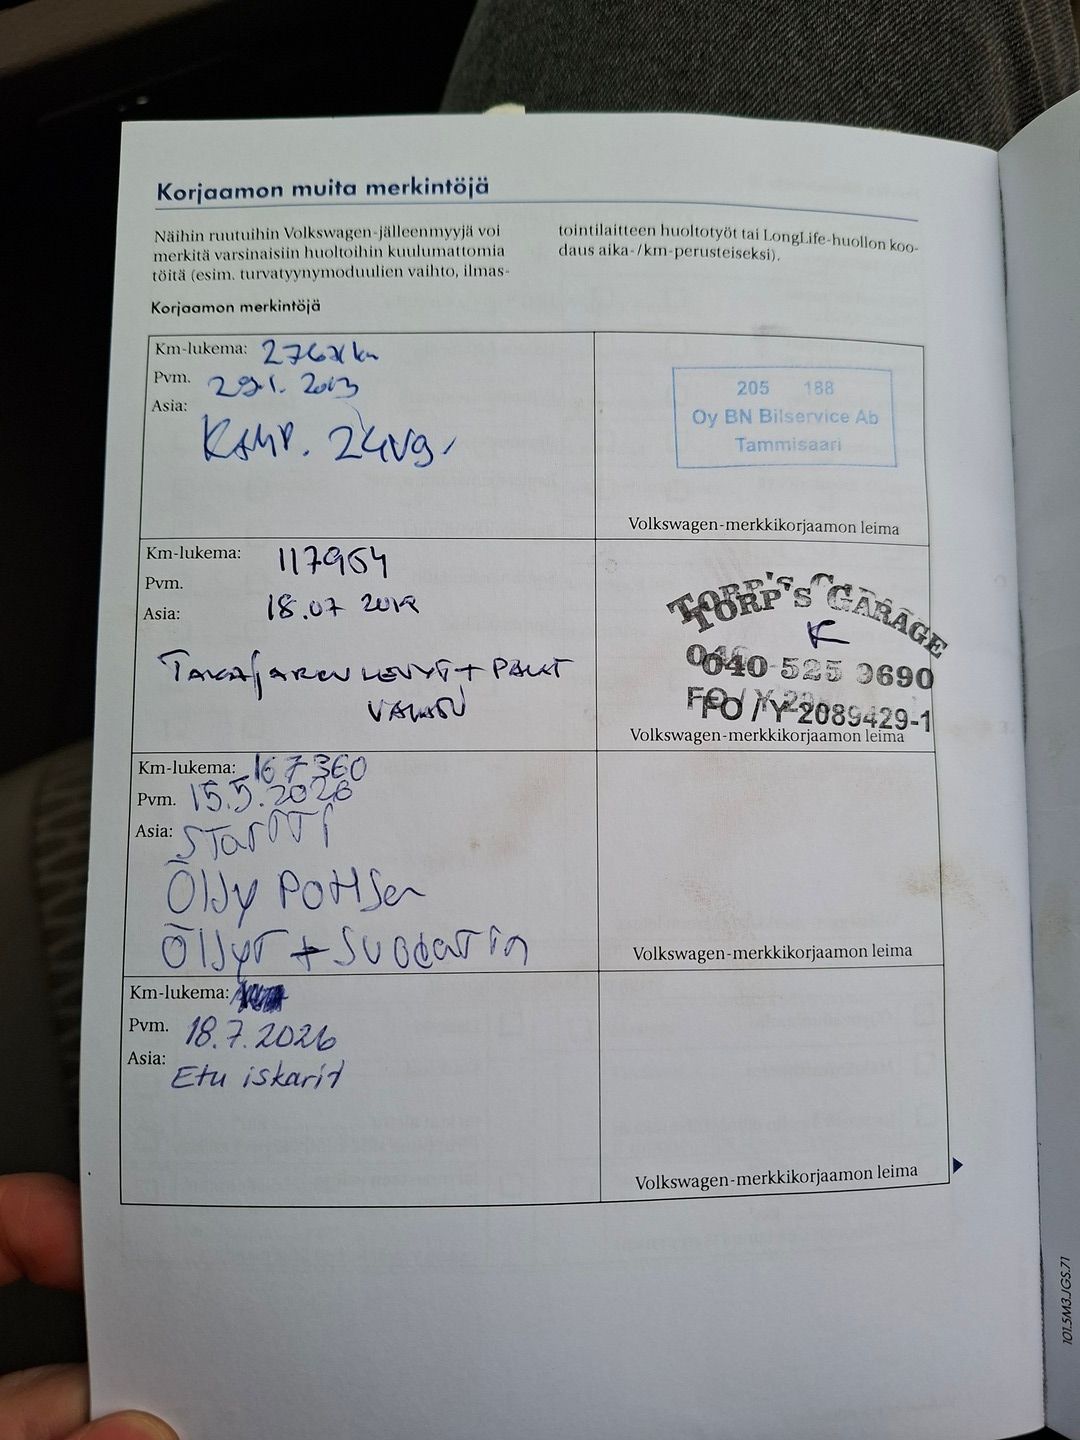 Korjaamon muita merkintöjä
Näihin ruutuihin Volkswagen-jälleenmyyjä voi
merkitä varsinaisiin huoltoihin kuulumattomia
töitä (esim. turvatyynymoduulien vaihto, ilmas-
tointilaitteen huoltotyöt tai LongLife-huollon koo-
daus aika-/km-perusteiseksi).
Korjaamon merkintöjä
Km-lukema: km
Pvm. 29.1. 2013
Asia:
KAMP.
205 188
Oy BN Bilservice Ab
Tammisaari
Volkswagen-merkkikorjaamon leima
Km-lukema: 117954
Pvm.
Asia: 18.07 2019
TAKAJARRU LEVYT + PALAT
TORP'S GARAGE
040 525 9690
FO / Y 2089429-1
Volkswagen-merkkikorjaamon leima
Km-lukema: 167360
Pvm. 15.5.2026
Asia: STarTTi
Öljy Pohjan
Öljyt + Suodatin
Volkswagen-merkkikorjaamon leima
Km-lukema:
Pvm. 18.7.2026
Asia:
Etu iskarit
Volkswagen-merkkikorjaamon leima
101.5M3.JGS.71